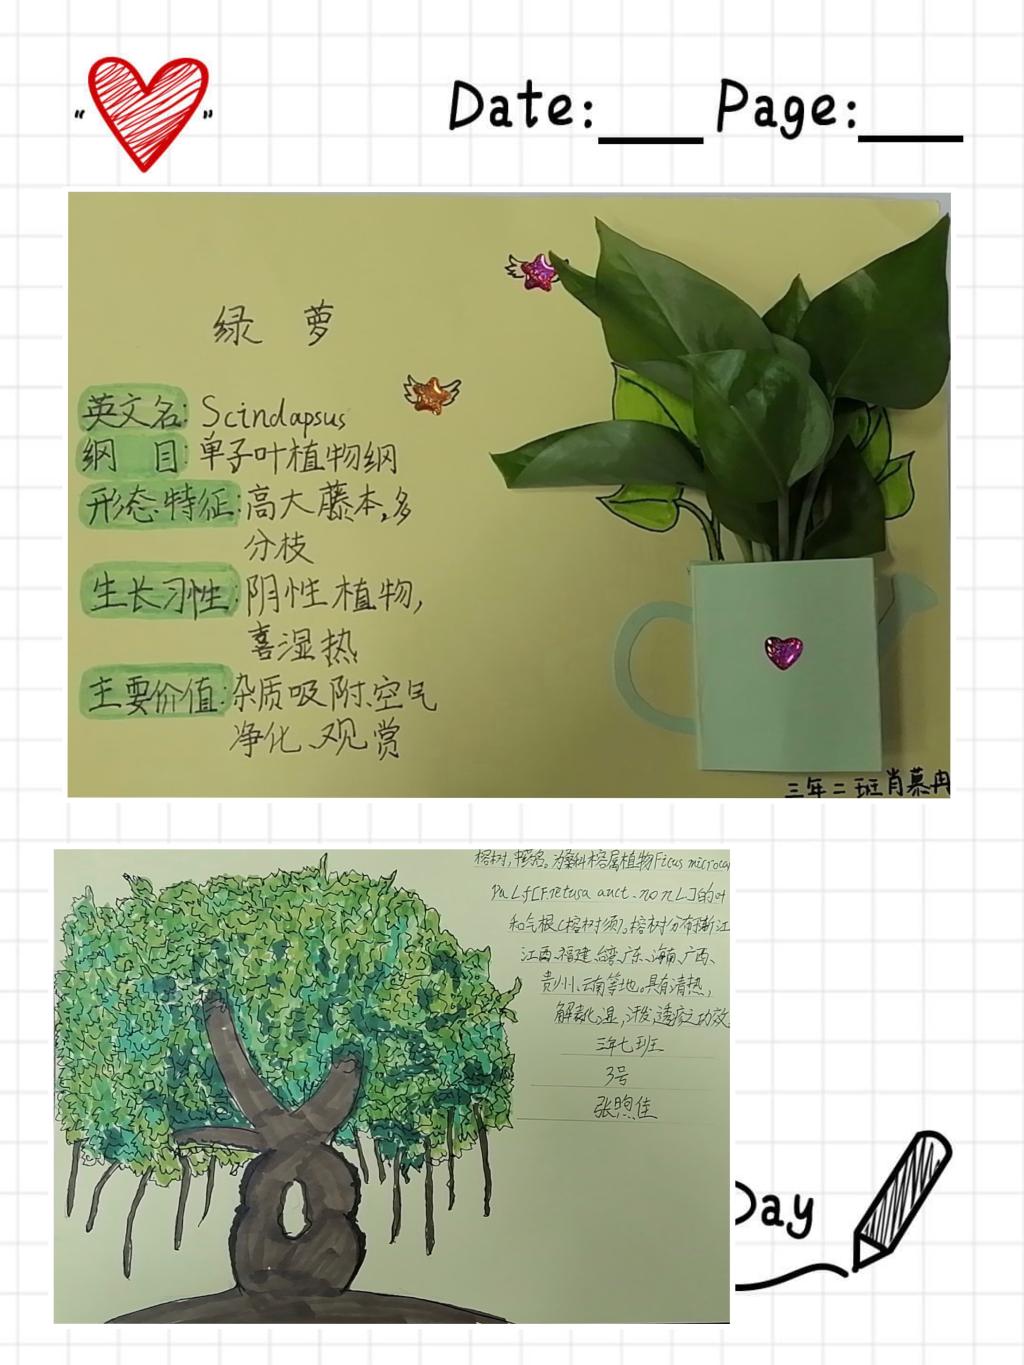 Date:___ Page:___
绿 萝
英文名: Scindapsus
纲 目: 单子叶植物纲
形态特征: 高大藤本,多
分枝
生长习性: 阴性植物,
喜湿热
主要价值: 杂质吸附、空气
净化、观赏
三年二班肖慕冉
榕树,中药名。为桑科榕属植物Ficus microcar
pa L.f.[F.retusa auct. non L.]的叶
和气根(榕树须)。榕树分布于浙江
江西、福建、台湾、广东、海南、广西、
贵州、云南等地。具有清热,
解表化湿,
三年七班
3号
张煦佳
Day